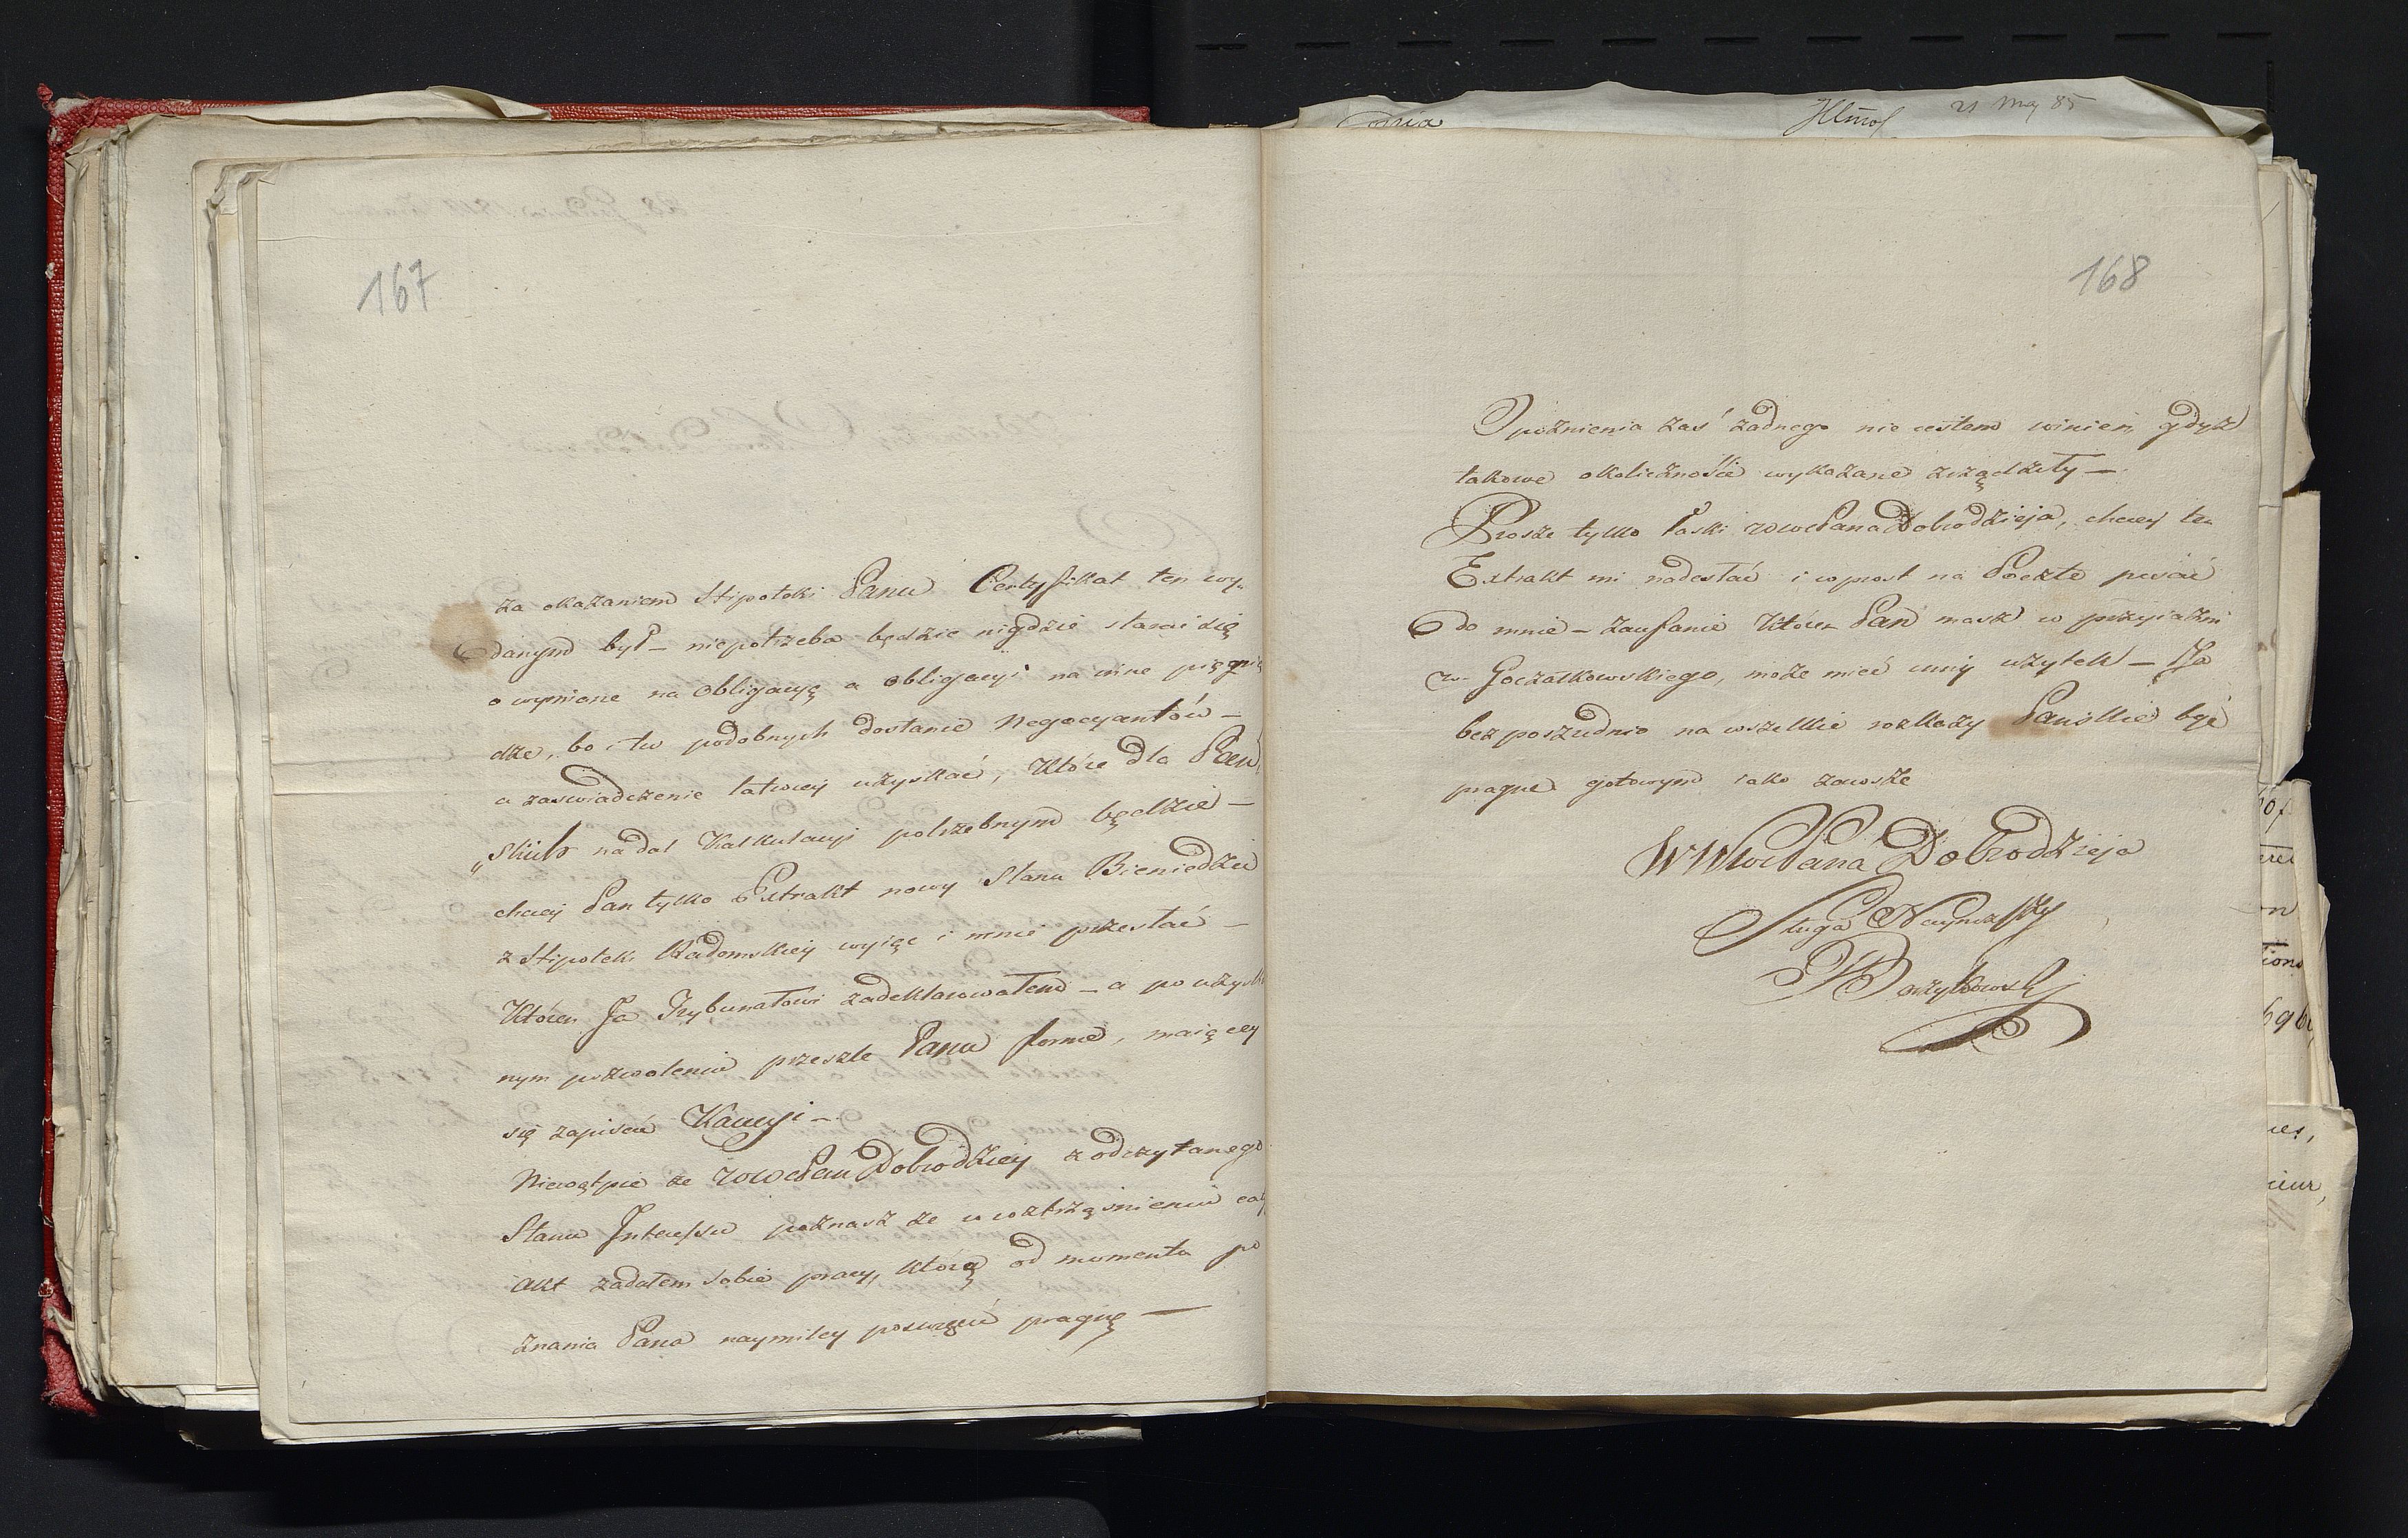 167
za okazaniem Hipoteki Panu Certyfikat ten wy-
danym był – niepotrzeba będzie nigdzie starać się
o wymiane na obligacyę a obligacyi na inne pięnią
dze, bo i tu podobnych dostanie Negocyantów –
a zaswiadczenie łatwiey uzyskać, które dla Pań,
„skich nadal Kalkulacyi potrzebnym będzie –
chciey Pan tylko Extrakt nowy Stanu Bieniędzic
z Hipoteki Radomskiey wyiąć i mnie przesłać –
któren Ja Trybunałowi zadeklarowałem – a po uzyska
nym pozwoleniu przeszle Panu forme, maiącey
się zapisać Kaucyi –
Niewątpie ze WWPan Dobrodziey z odczytanego
Stanu Interessu poznasz ze w roztrząsnieniu cał
akt zadałem sobie pracy, którą od momentu po
znania Pana naymiley poswięcić pragnę —
21 Maj 85
168
Opoznienia zas zadnego nie iestem winien, gdyz
takowe okoliczności wykazane zrządziły —
Prosze tylko łaski WWPana Dobrodzieja, chciey ten
Extrakt mi nadesłać i wprost na Poczte pisać
do mnie – zaufanie któren Pan masz w przyiazni
W. Goczałkowskiego, może mieć inny użytek – Ja
bezposzrednio na wszelkie rozkazy Pańskie być
pragne gotowym iako zawsze
WWPana Dobrodzieja
Sługa Nayniższy